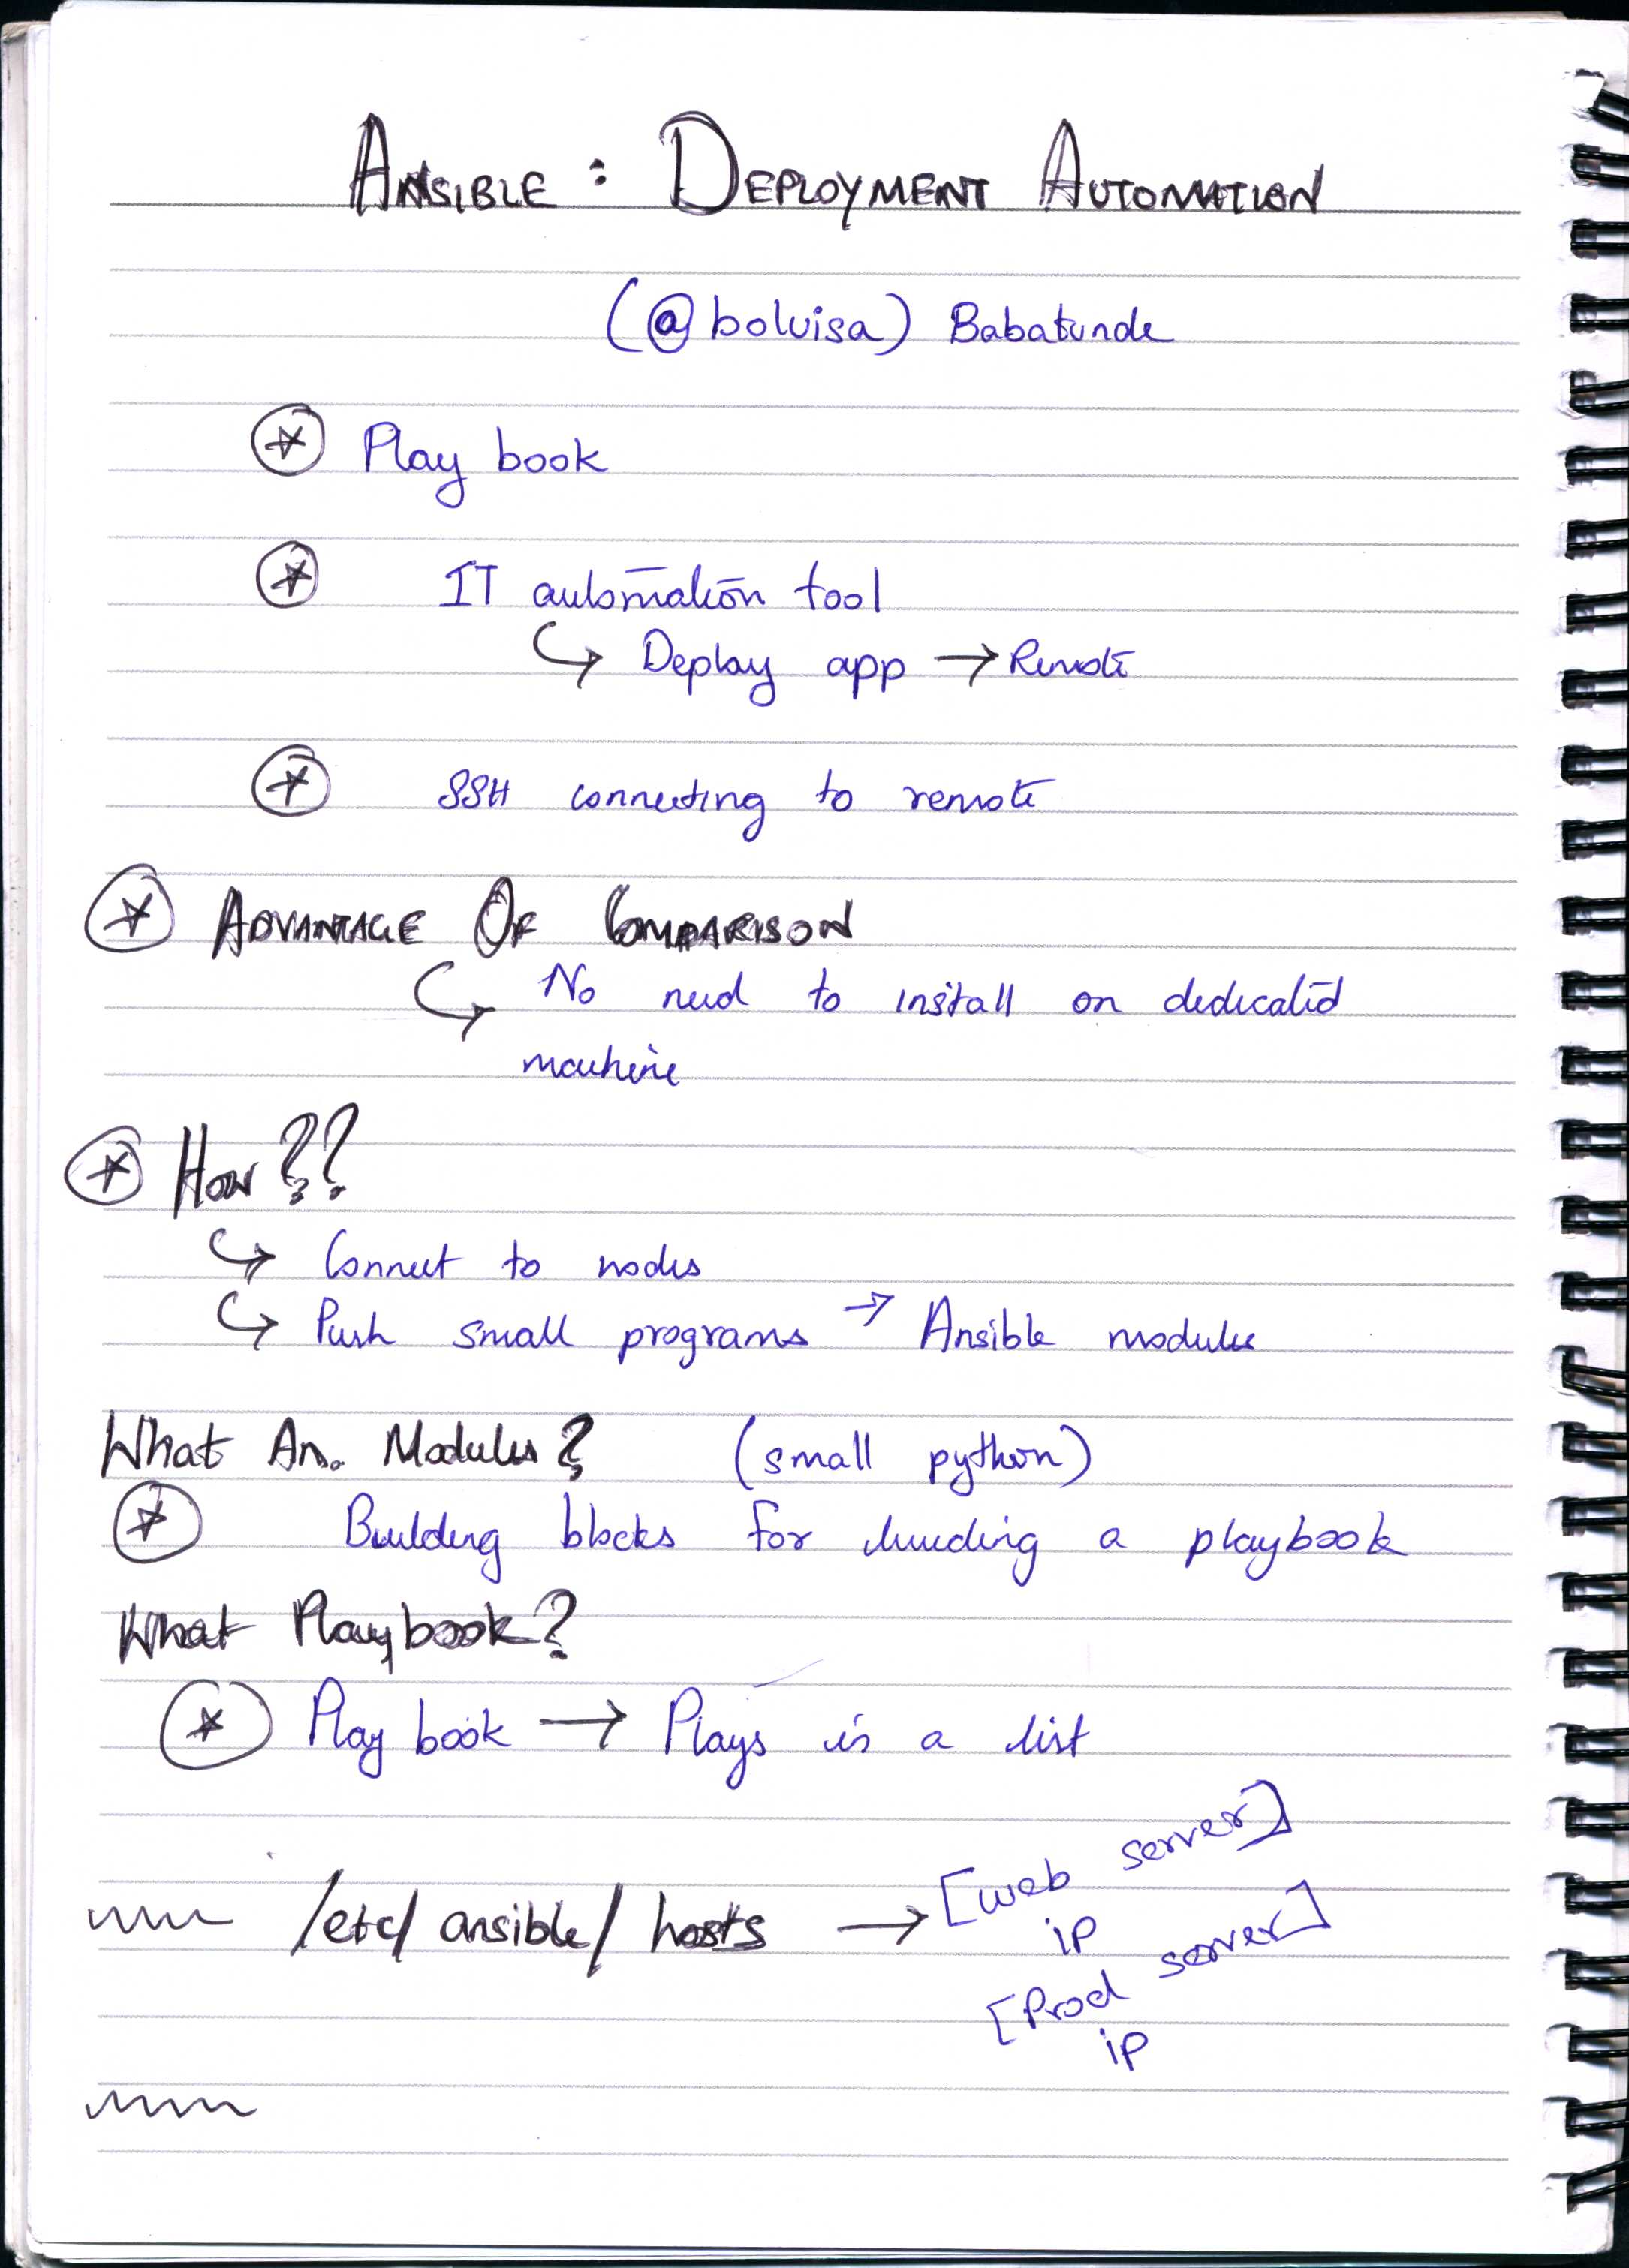 ANSIBLE : DEPLOYMENT AUTOMATION
(@boluisa) Babatunde
Play book
IT automation tool
Deploy app → Remote
SSH connecting to remote
ADVANTAGE OF COMPARISON
No need to install on dedicated
machine
HOW??
Connect to nodes
Push small programs → Ansible modules
What An. Modules? (small python)
Building blocks for a playbook
What Playbook?
Play book → Plays is a list
/etc/ansible/hosts → [web server]
ip
[Prod server]
ip